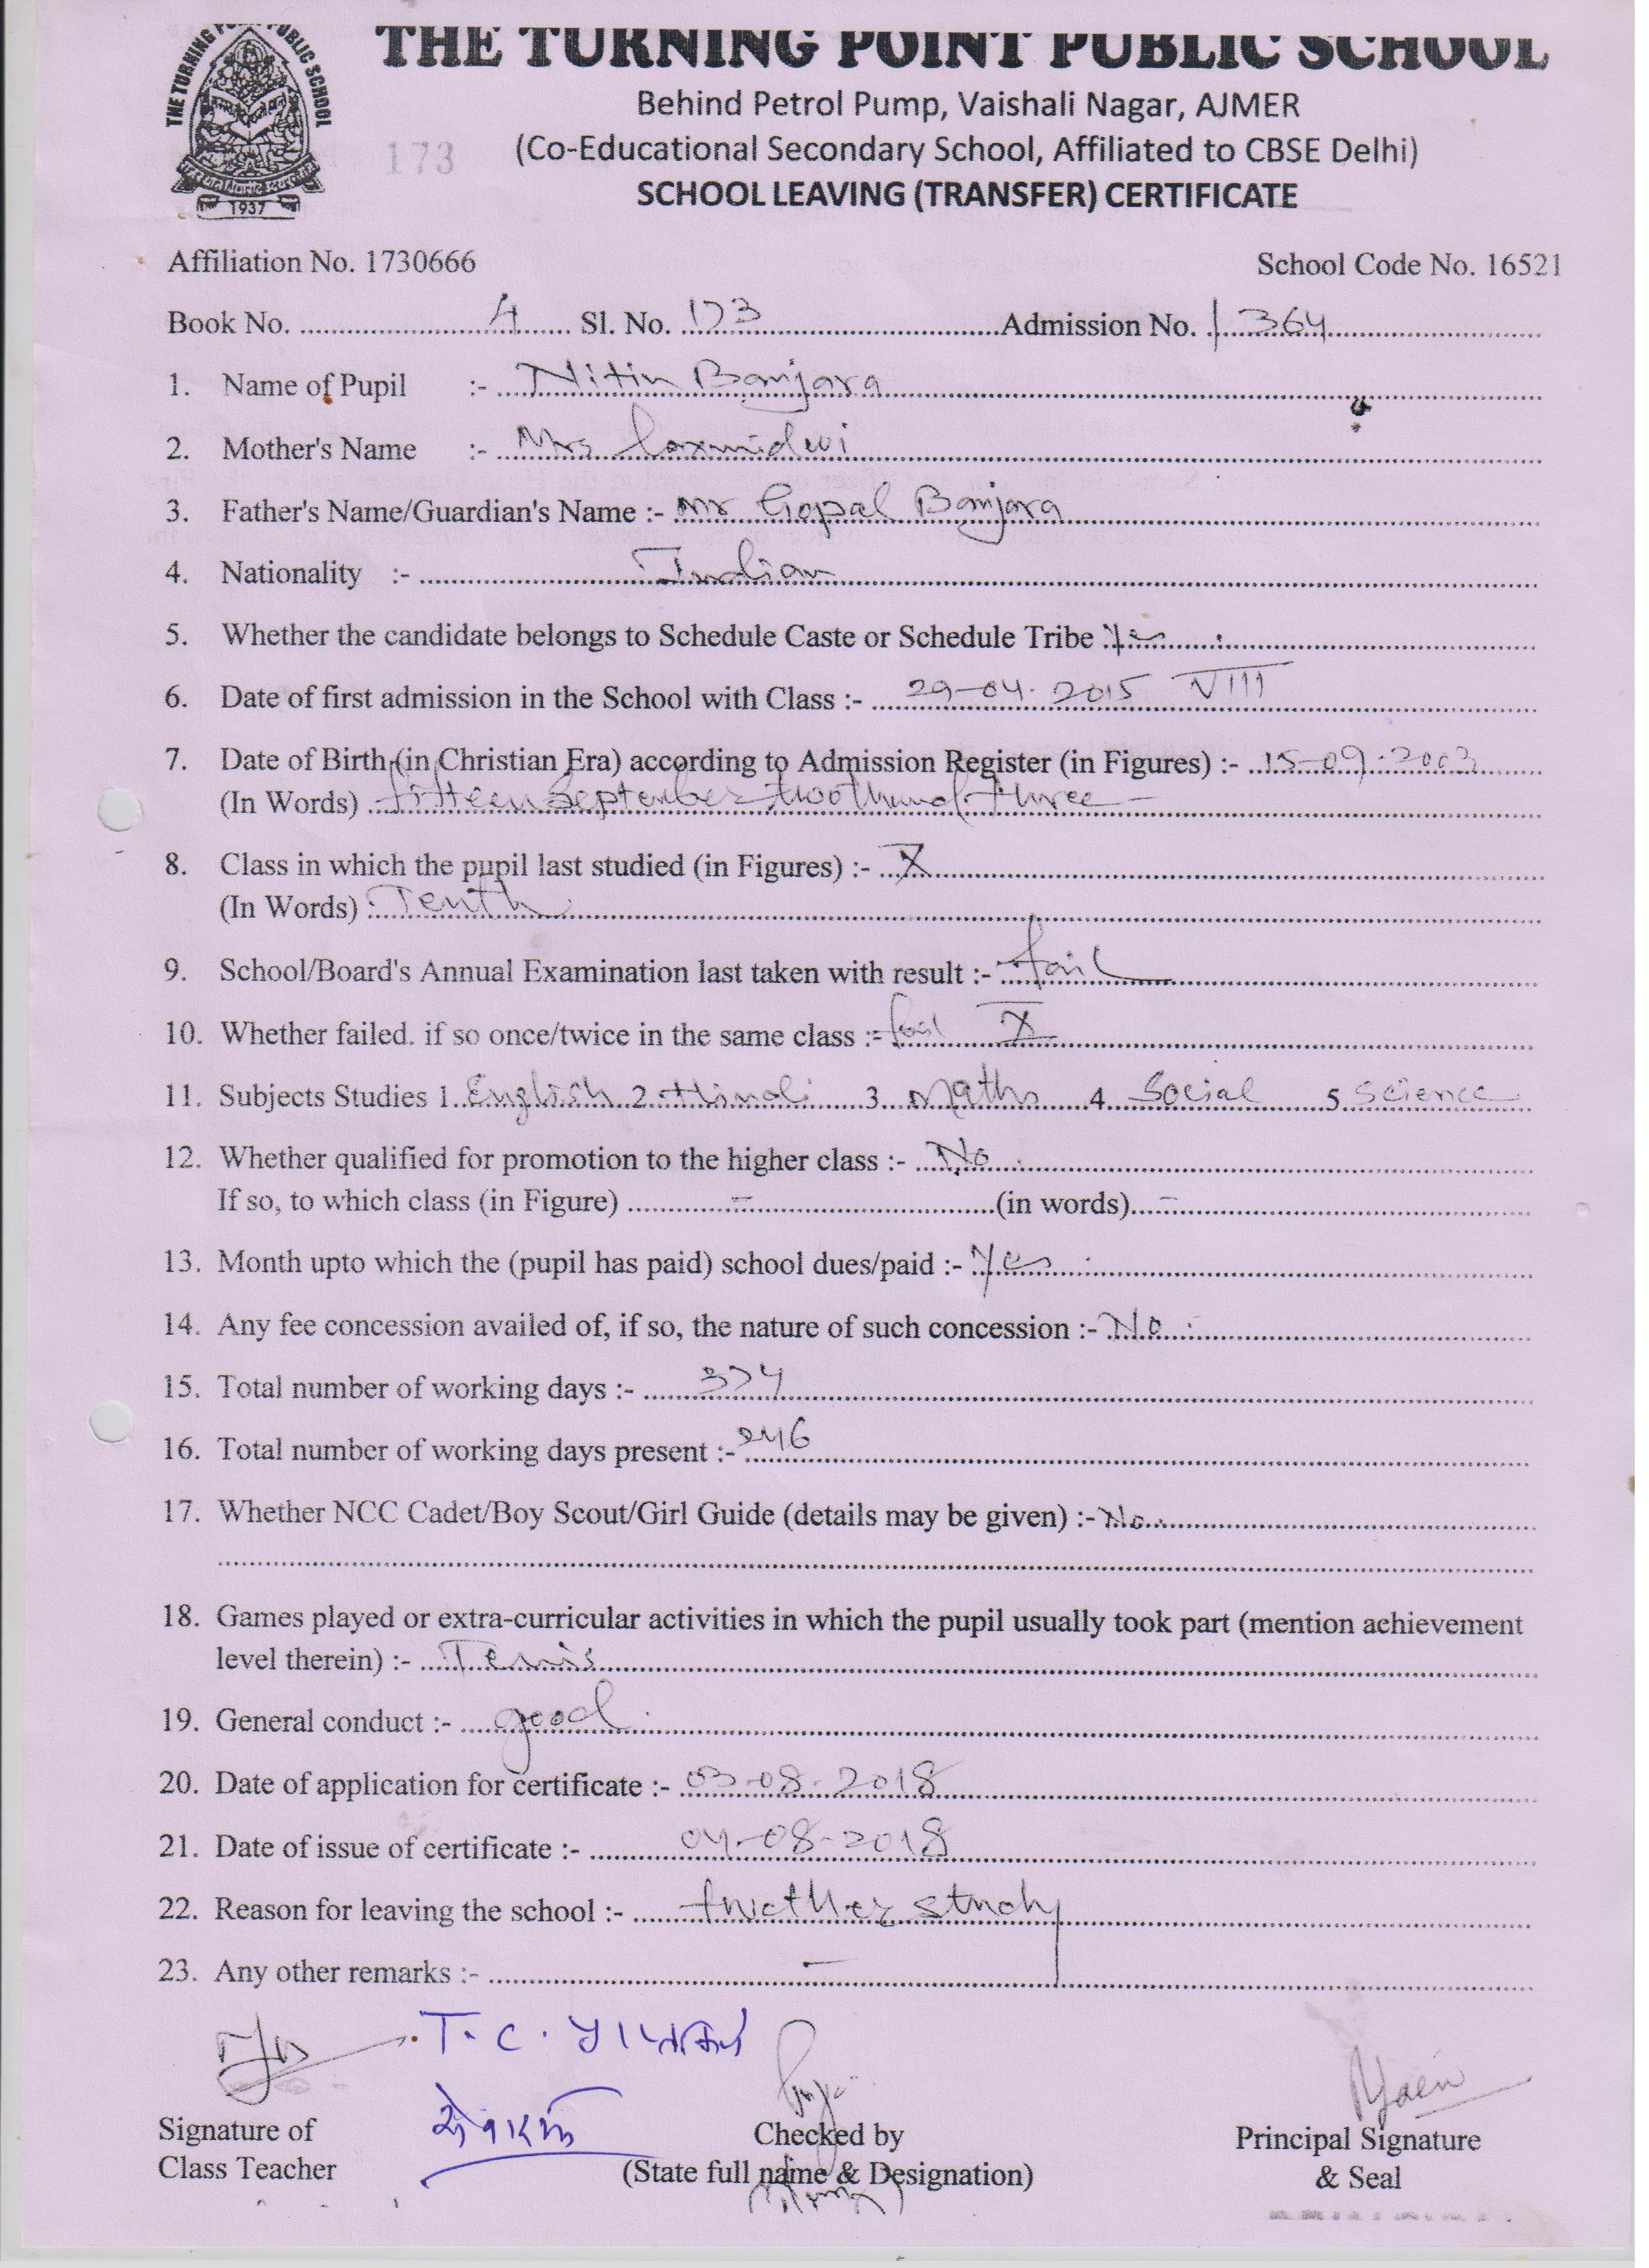 THE TURNING POINT PUBLIC SCHOOL
THE TURNING POINT PUBLIC SCHOOL
1937
Behind Petrol Pump, Vaishali Nagar, AJMER
173
(Co-Educational Secondary School, Affiliated to CBSE Delhi)
SCHOOL LEAVING (TRANSFER) CERTIFICATE
Affiliation No. 1730666 School Code No. 16521
Book No. 4 Sl. No. 173 Admission No. 1364
1. Name of Pupil :- Nitin Banjara
2. Mother's Name :- Mrs Laxmidevi
3. Father's Name/Guardian's Name :- Mr Gopal Banjara
4. Nationality :- Indian
5. Whether the candidate belongs to Schedule Caste or Schedule Tribe Yes
6. Date of first admission in the School with Class :- 29-04-2015 VIII
7. Date of Birth (in Christian Era) according to Admission Register (in Figures) :- 15-09-2003
(In Words) fifteen September two thund. three
8. Class in which the pupil last studied (in Figures) :- X
(In Words) Tenth
9. School/Board's Annual Examination last taken with result :- fail
10. Whether failed. if so once/twice in the same class :- fail X
11. Subjects Studies 1. English 2. Hindi 3. Maths 4. Social 5. Science
12. Whether qualified for promotion to the higher class :- No
If so, to which class (in Figure) - (in words) -
13. Month upto which the (pupil has paid) school dues/paid :- Yes
14. Any fee concession availed of, if so, the nature of such concession :- No
15. Total number of working days :- 374
16. Total number of working days present :- 246
17. Whether NCC Cadet/Boy Scout/Girl Guide (details may be given) :- No
18. Games played or extra-curricular activities in which the pupil usually took part (mention achievement
level therein) :- Tennis
19. General conduct :- good
20. Date of application for certificate :- 03-08-2018
21. Date of issue of certificate :- 04-08-2018
22. Reason for leaving the school :- study
23. Any other remarks :- -
T.C.
Signature of Checked by Principal Signature
Class Teacher (State full name & Designation) & Seal